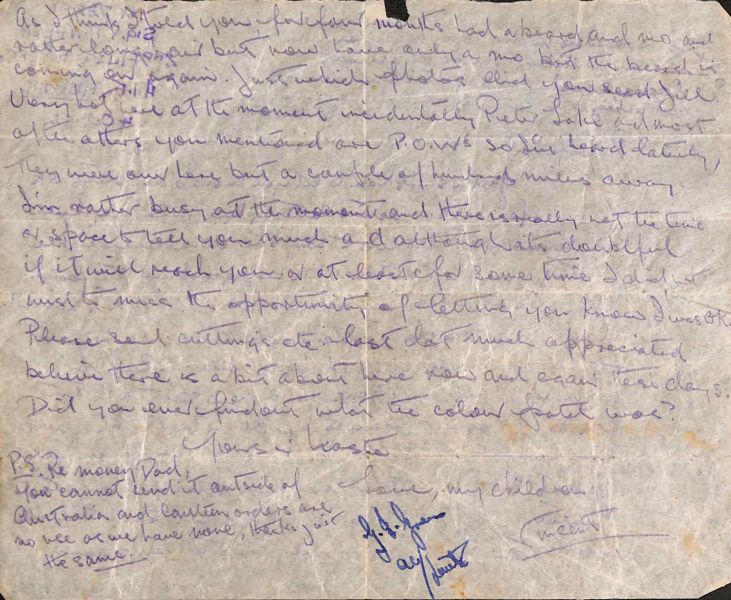 As I think I told you, for four months had a beard and mo and
rather long hair but now have only a mo but the beard is
coming on again. Just which photos did you send Jill?
Very hot here at the moment incidentally Peter and most
of the others you mentioned are P.O.Ws so I've heard lately,
They were over here but a couple of hundred miles away
I'm rather busy at the moment and there is really not the time
or space to tell you much and although its doubtful
if it will reach you or at least for some time I did not
want to miss the opportunity of letting you know I was OK.
Please send cuttings etc. last lot much appreciated
believe there is a bit about here now and again these days.
Did you ever find out what the colour patch was?
Yours in haste
Love, my children
Vincent
P.S. Re money Dad,
You cannot send it outside of
Australia and canteen orders are
no use as we have none, thanks just
the same.
Lieut